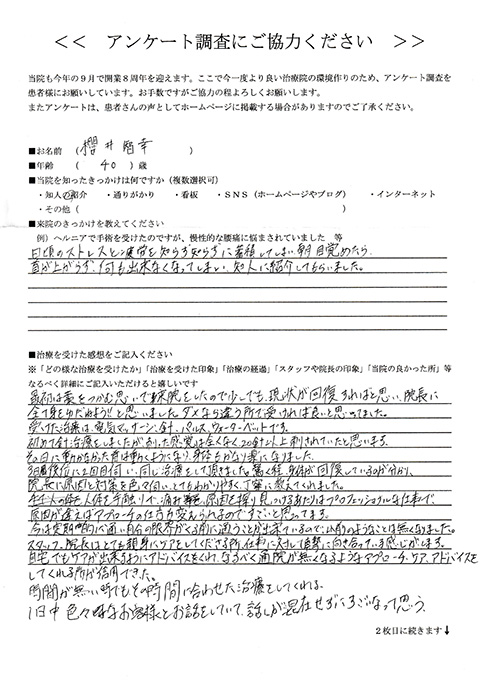 << アンケート調査にご協力ください >>
当院も今年の9月で開業8周年を迎えます。ここで今一度より良い治療院の環境作りのため、アンケート調査を
患者様にお願いしています。お手数ですがご協力の程よろしくお願いします。
またアンケートは、患者さんの声としてホームページに掲載する場合がありますのでご了承ください。
■お名前 ( 櫻井智幸 )
■年齢 ( 40 ) 歳
■当院を知ったきっかけは何ですか(複数選択可)
・知人の紹介 ・通りがかり ・看板 ・SNS(ホームページやブログ) ・インターネット
・その他( )
■来院のきっかけを教えてください
例)ヘルニアで手術を受けたのですが、慢性的な腰痛に悩まされていました 等
日頃のストレスと疲労を知らず知らずに蓄積してしまい朝目覚めたら
首が上がらず、何も出来なくなってしまい、知人に紹介してもらいました。
■治療を受けた感想をご記入ください
※「どの様な治療を受けたか」「治療を受けた印象」「治療の経過」「スタッフや院長の印象」「当院の良かった所」等
なるべく詳細にご記入いただけると嬉しいです
最初は藁をつかむ思いで来院をしたので少しでも、現状が回復すればと思い、院長に
全て身をゆだねようと思いました。ダメなら違う所で受ければ良いと思ってました。
受けた治療は、電気マッサージ、針、パルス、ウォーターベットです。
初めて針治療をしましたが、刺した感覚は全くなく20本以上刺されていたと思います。
その日に動かなかった首は動くようになり、身体もかなり楽になりました。
3日後位に2回目伺い、同じ治療をして頂きました。驚く程、身体が回復しているのが分かり、
院長に原因と対策を色々伺い、とてもわかりやすく、丁寧に教えてくれました。
人体を手触りで、痛み、原因を探り見つける
原因が違えばアプローチの仕方も変えられるのですごいと思ってます。
今は定期的に通い自分の限界がくる前に通うことが出来ているので、以前のようなことは無くなりました。
スタッフ、院長はとても親身にケアをしてくださる所、仕事に対して真摯に向き合っている感じがします。
自宅でもケアが出来るようにアドバイスをくれて、なるべく通院が無くなるようなアプローチ、ケア、アドバイスを
してくれる所が信用できた。
時間が無い時でもその時間に合わせた治療をしてくれる。
1日中色々な お客様とお話をしていて、話しが混在せずにすごいなって思う。
2枚目に続きます↓